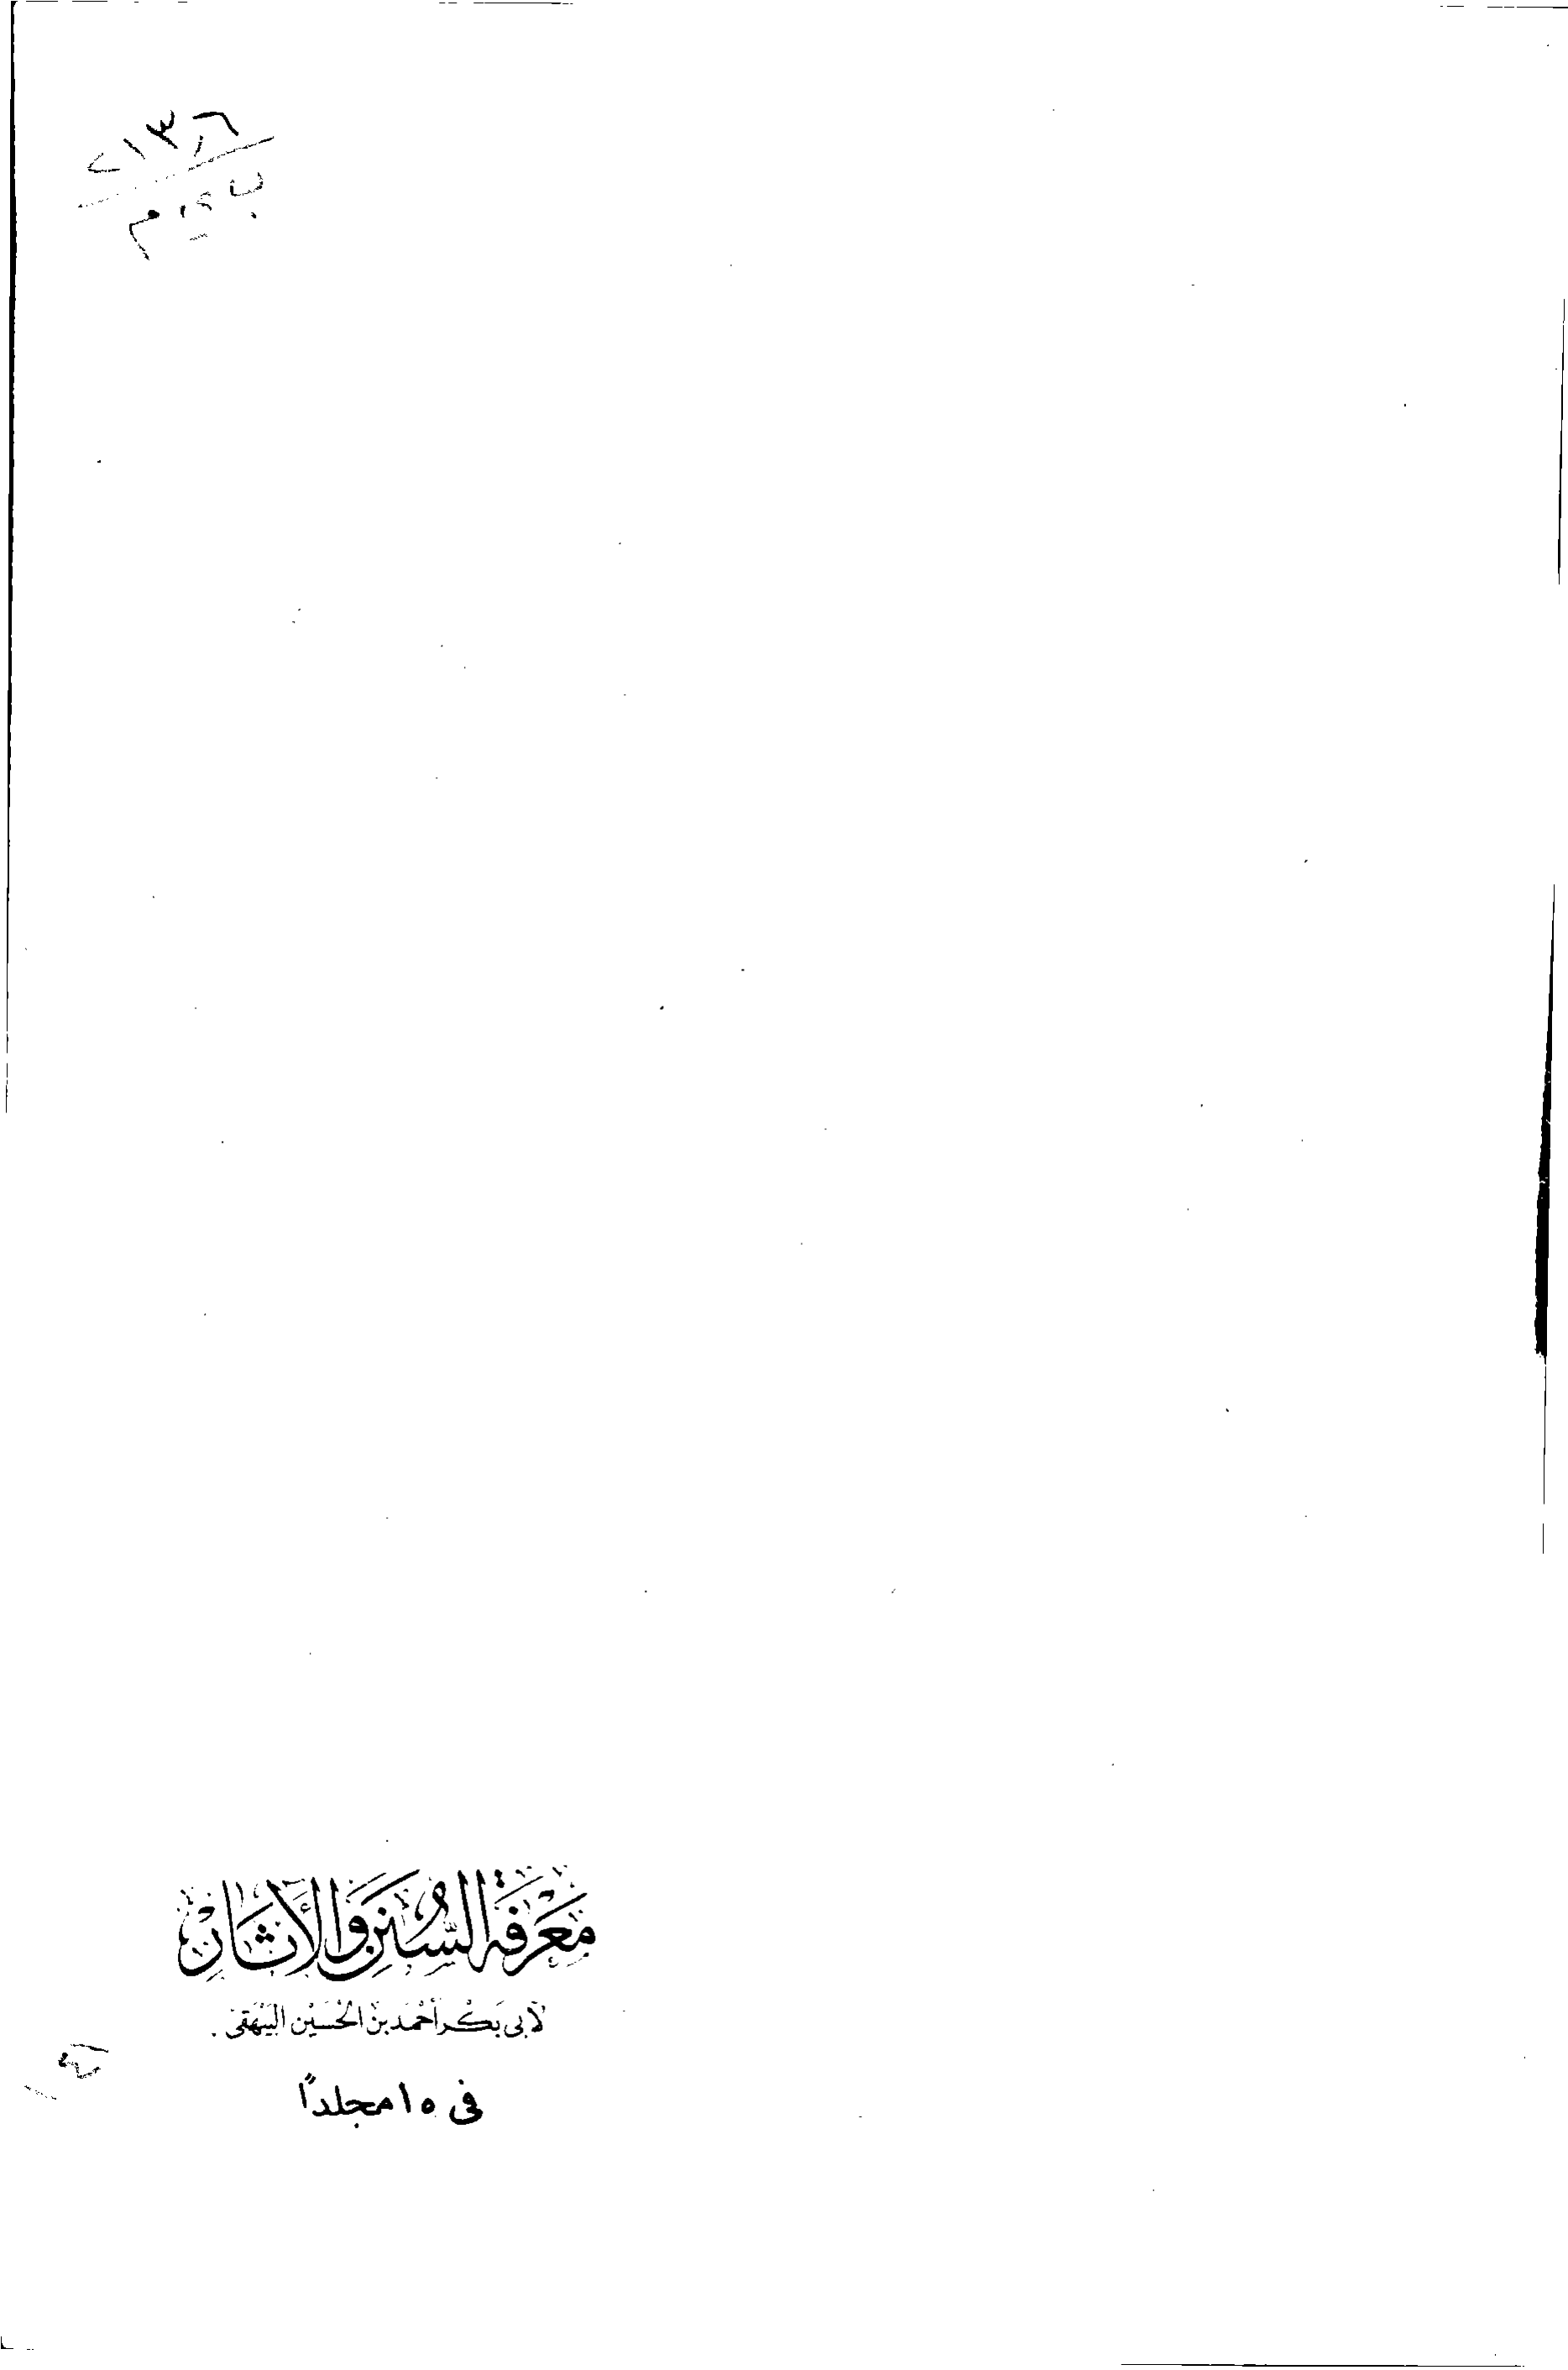 ٢١٣٫٦
ب ي م
مَعْرِفَةُ السُّنَنِ وَالْآثَارِ
لأبى بَكْر أحْمَد بن الحُسَيْن البَيْهَقى
فى ١٥ مجلداً